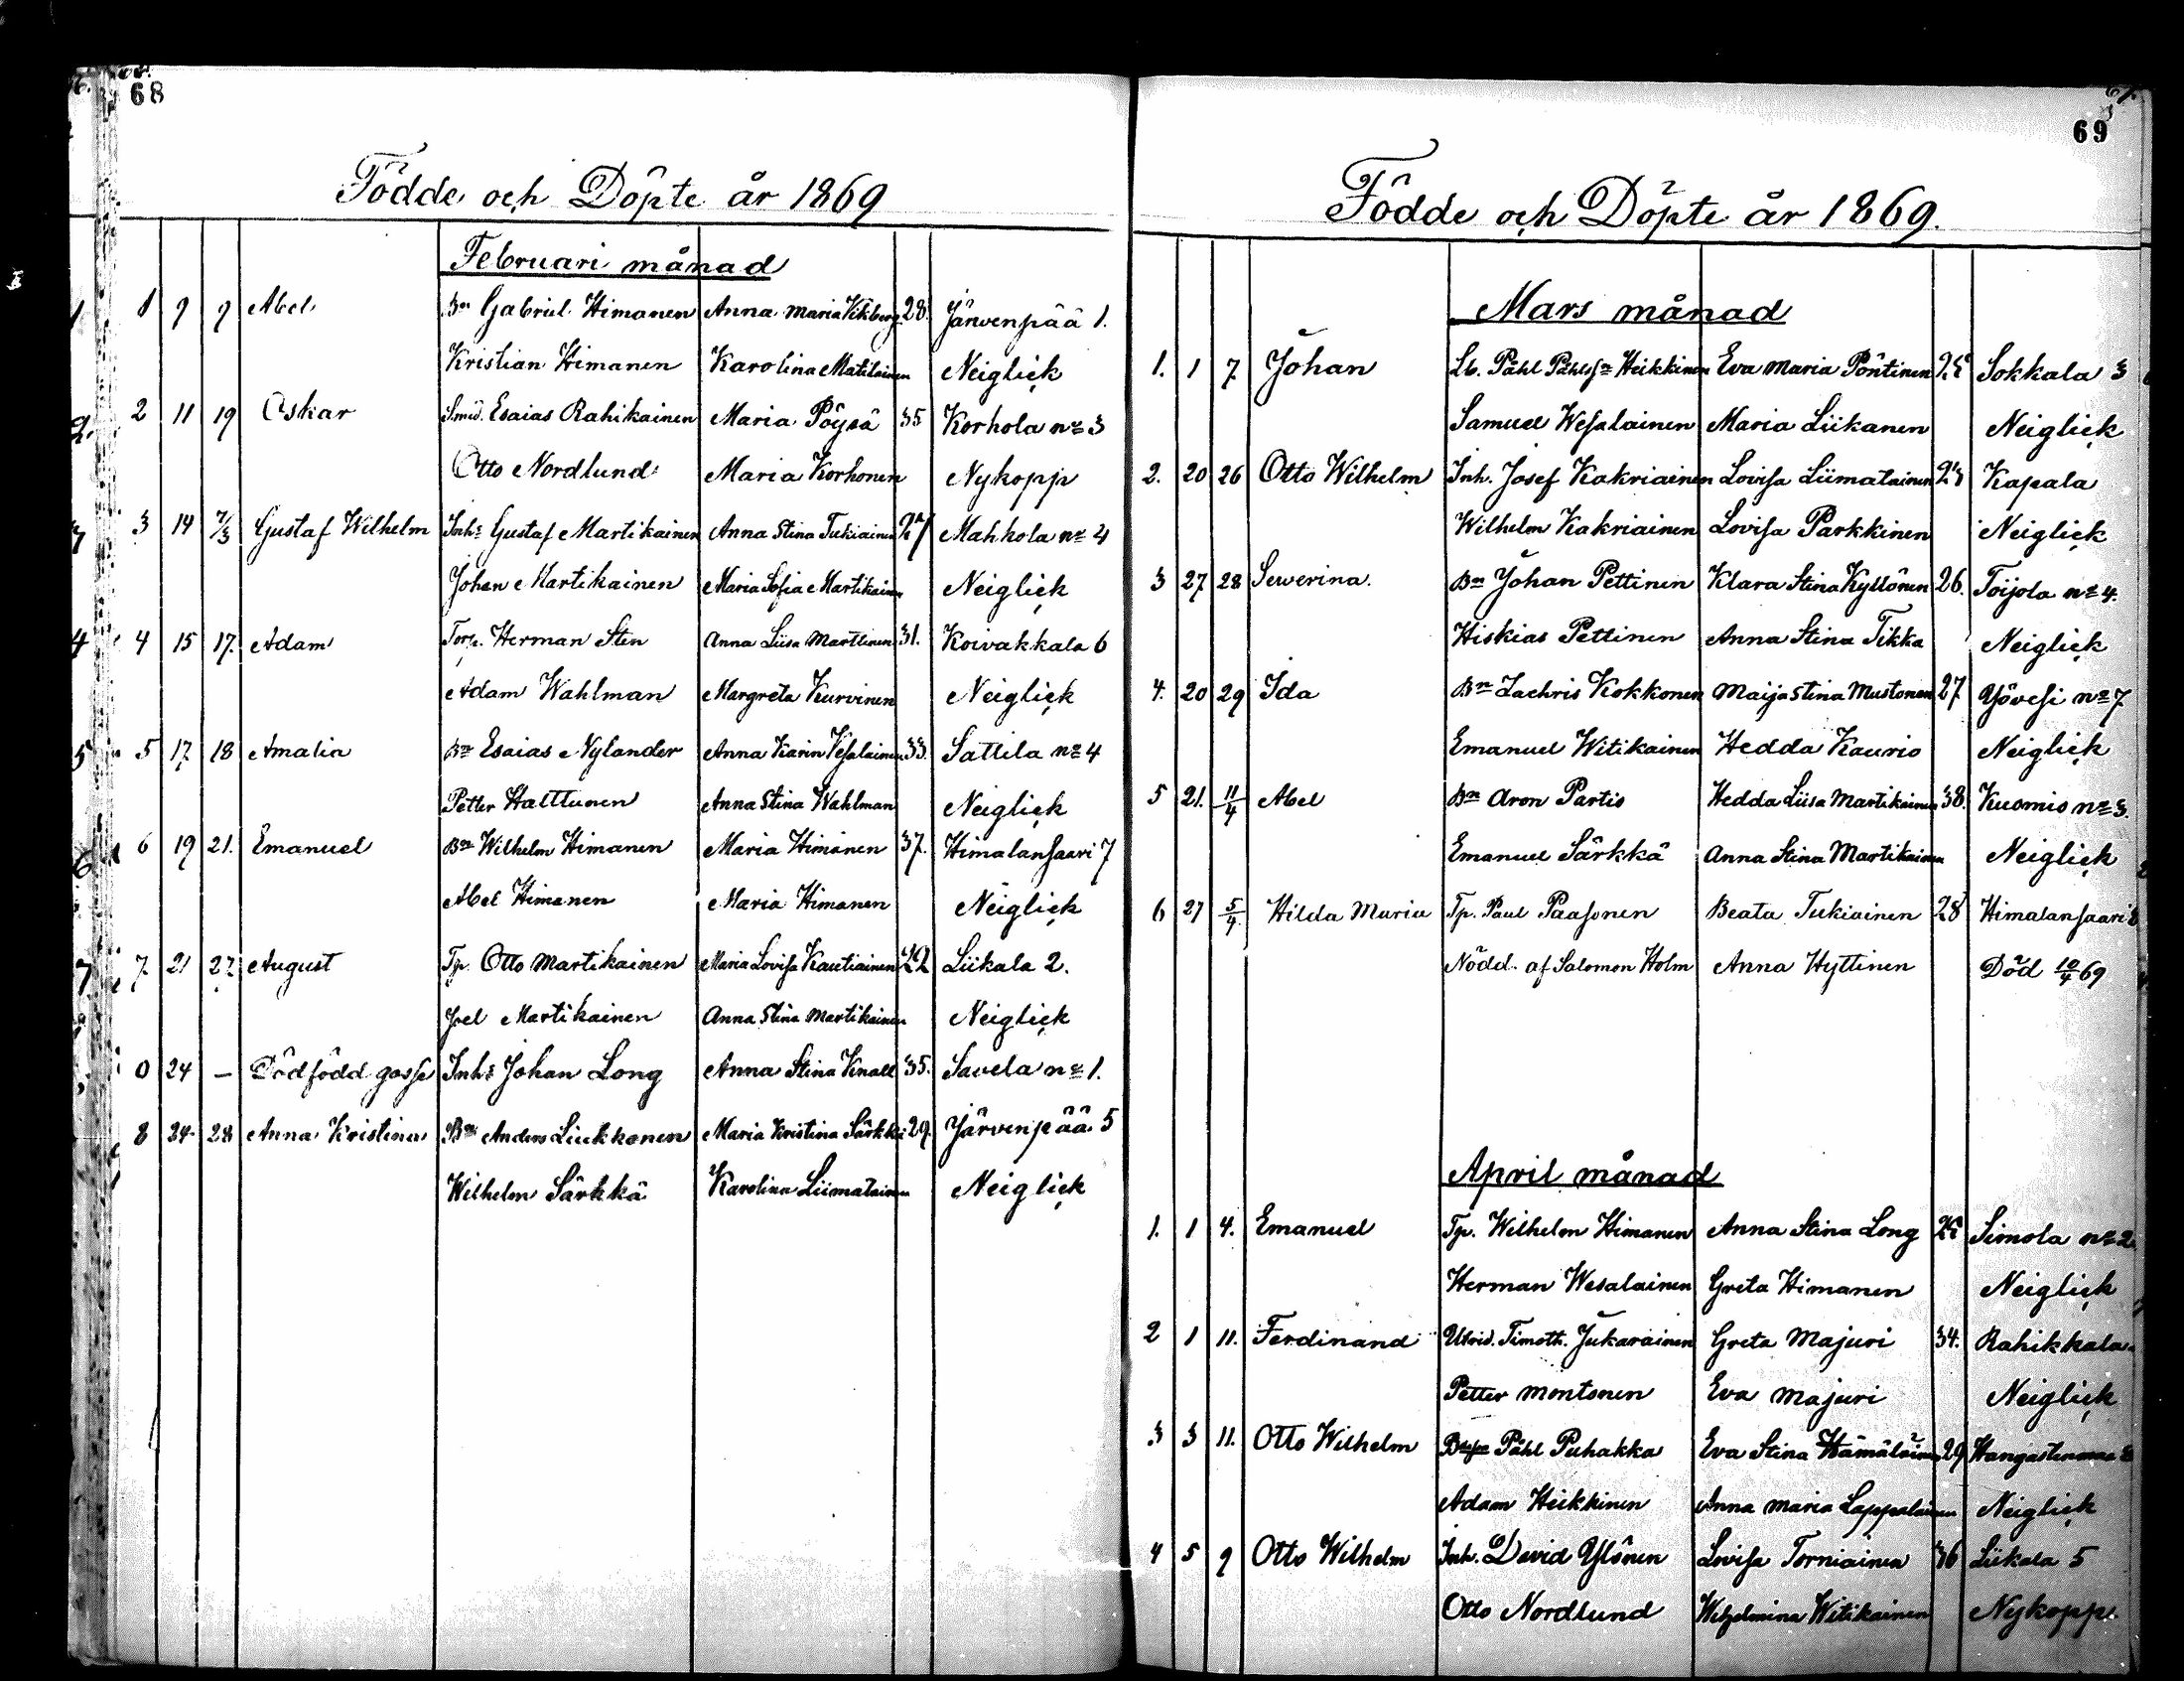 68
Födde och Döpte år 1869
Februari månad
1 9 9 Abel Bn Gabriel Himanen Anna Maria Vikberg 28. Järvenpää 1.
Kristian Himanen Karolina Matilainen Neiglick
2 11 19 Oskar Smid. Esaias Rahikainen Maria Pöysä 35 Korhola no 3
Otto Nordlund Maria Korhonen Nykopp
3 14 7/3 Gustaf Wilhelm Inhs Gustaf Martikainen Anna Stina Tukiainen 27 Mahhola no 4
Johan Martikainen Maria Sofia Martikainen Neiglick
4 15 17. Adam Torp. Herman Sten Anna Liisa Marttinen 31. Koivakkala 6
Adam Wahlman Margreta Kurvinen Neiglick
5 17 18 Amalia Bn Esaias Nylander Anna Karin Vesalainen 33. Sattila no 4
Petter Halttunen Anna Stina Wahlman Neiglick
6 19 21. Emanuel Bn Wilhelm Himanen Maria Himanen 37. Himalansaari 7
Abel Himanen Maria Himanen Neiglick
7. 21 27 August Tp. Otto Martikainen Maria Lovisa Kautiainen 42 Liikala 2.
Joel Martikainen Anna Stina Martikainen Neiglick
0 24 — Dödfödd gosse Inhs Johan Long Anna Stina Kinall 35. Savela no 1.
8 24 28 Anna Kristina Bn Anders Liukkonen Maria Kristina Särkkä 29. Järvenpää 5
Wilhelm Särkkä Karolina Liimatainen Neiglick
69
Födde och Döpte år 1869.
Mars månad
1. 1 7 Johan Lb. Påhl Påhlsson Heikkinen Eva Maria Pöntinen Sokkala 3
Samuel Wesalainen Maria Liikanen Neiglick
2. 20 26 Otto Wilhelm Inh. Josef Kakriainen Lovisa Liimatainen 23 Kapala
Wilhelm Kakriainen Lovisa Parkkinen Neiglick
3 27 28 Sewerina. Bn Johan Pettinen Klara Stina Kyllönen 26. Toijola no 4.
Hiskias Pettinen Anna Stina Tikka Neiglick
4. 20 29 Ida Bn Zachris Kokkonen Maija Stina Mustonen 27 Yövesi no 7
Emanuel Witikainen Hedda Kaurio Neiglick
5 21. 11/4 Abel Bn Aron Partio Hedda Liisa Martikainen 38. Kuomio no 3.
Emanuel Särkkä Anna Stina Martikainen Neiglick
6 27 5/4 Hilda Maria Tp. Paul Paasonen Beata Tukiainen 28 Himalansaari 8
Nödd. af Salomon Holm Anna Hyttinen Död 10/4 69
April månad
1. 1 4. Emanuel Tp. Wilhelm Himanen Anna Stina Long Simola no 2
Herman Wesalainen Greta Himanen Neiglick
2 1 11. Ferdinand Utrid. Timoth. Jukarainen Greta Majuri 34. Rahikkala
Petter Montonen Eva Majuri Neiglick
3 3 11. Otto Wilhelm Påhl Puhakka Eva Stina Hämäläinen 29
Adam Heikkinen Anna Maria Lappalainen Neiglick
4 5 9 Otto Wilhelm Inh. David Ylönen Lovisa Torniainen 36 Liikala 5
Otto Nordlund Wilhelmina Witikainen Nykopp.